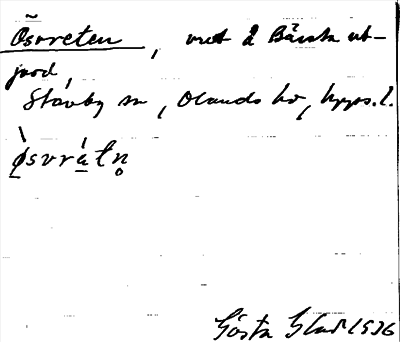 Ösvreten, vret å Bärsta ut-
jord,
Stavby sn, Olands hd, Upps. l.
ö̀svrátn̥
Gösta Blad 1936